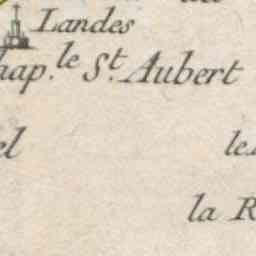 Landes
hap. le St. Aubert
el
le
la R